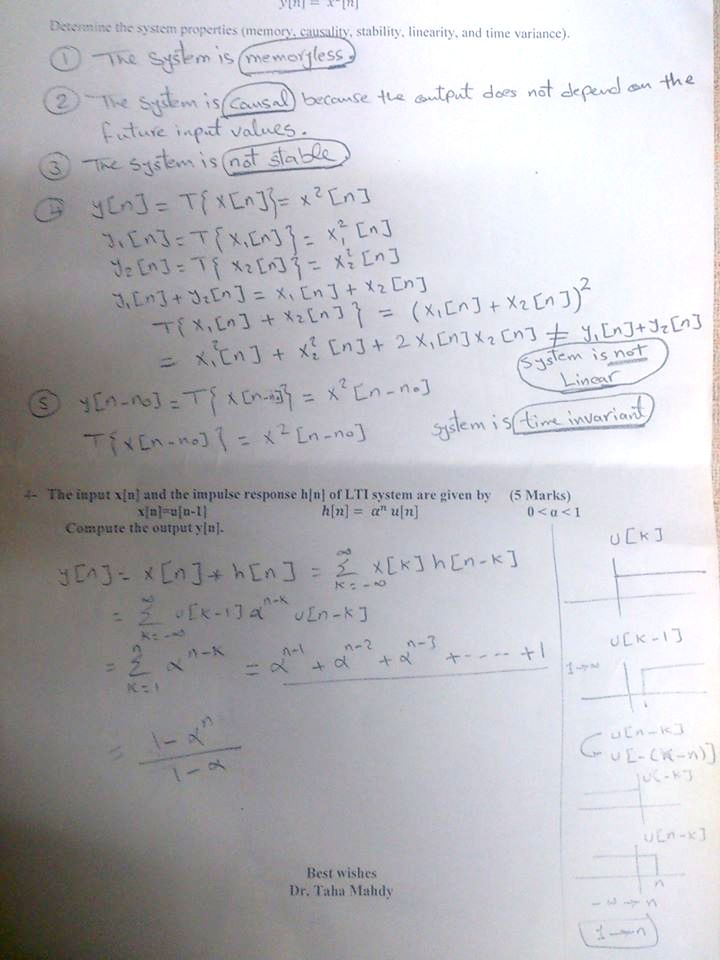 y[n] = x²[n]
Determine the system properties (memory, causality, stability, linearity, and time variance).
① The system is memoryless.
② The system is causal because the output does not depend on the
future input values.
③ The system is not stable.
④ y[n] = T{x[n]} = x²[n]
y₁[n] = T{x₁[n]} = x₁²[n]
y₂[n] = T{x₂[n]} = x₂²[n]
y₁[n] + y₂[n] = x₁[n] + x₂[n]
T{x₁[n] + x₂[n]} = (x₁[n] + x₂[n])²
= x₁²[n] + x₂²[n] + 2x₁[n]x₂[n] ≠ y₁[n]+y₂[n]
System is not
Linear
⑤ y[n-n₀] = T{x[n-n₀]} = x²[n-n₀]
T{x[n-n₀]} = x²[n-n₀]
system is time invariant
4- The input x[n] and the impulse response h[n] of LTI system are given by (5 Marks)
x[n]=u[n-1] h[n] = αⁿ u[n] 0<α<1
Compute the output y[n].
y[n] = x[n] * h[n] = ∑ x[k] h[n-k] k=-∞ ∞
= ∑ u[k-1] α^(n-k) u[n-k] k=-∞ ∞
= ∑ α^(n-k) k=1 n = α^(n-1) + α^(n-2) + α^(n-3) + ----- + 1
= (1-αⁿ)/(1-α)
u[k]
u[k-1]
1→∞
u[n-k]
u[-(k-n)]
u[-k]
u[n-k]
n
-∞→n
1→n
Best wishes
Dr. Taha Mahdy